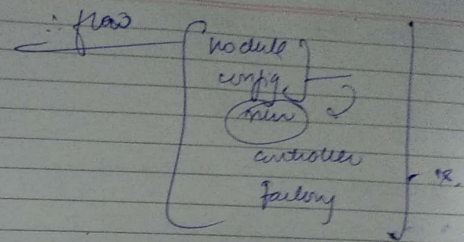 ∴ flow
module
config
run
controller
factory